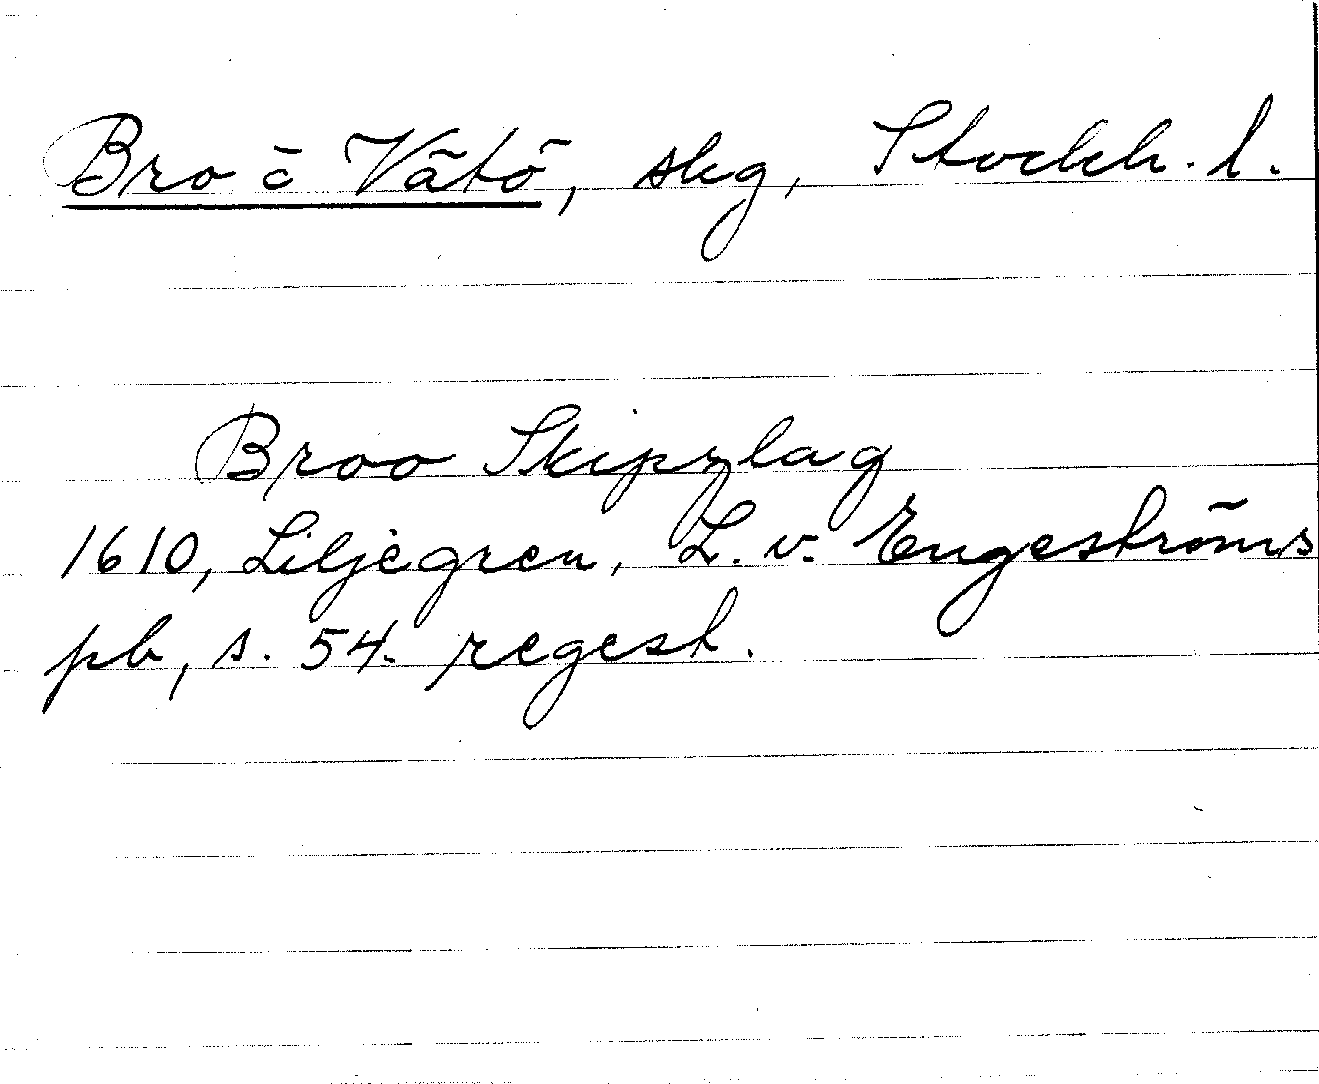 Bro c̄ Vätö, skg, Stockh. l.
Broo Skipzlag
1610, Liljegren, L. v. Engeströms
pb, s. 54. regest.